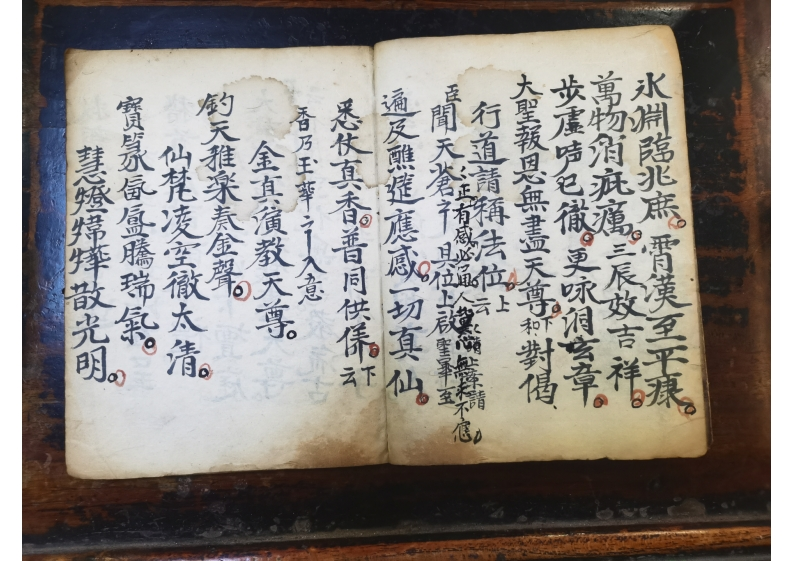 氷渊臨兆庶霄漢至平康
萬物消疵癘三辰效吉祥
步虛声已徹更咏洞玄章
大聖報恩無盡天尊下和對偈
行道請稱法位云上
臣聞天蒼 且位上啟聖事至
正有感必通人 無求不應
遍及醮筵應感一切真仙
悉仗真香普同供養云下
香乃玉華 入意
金真演教天尊
鈞天雅樂奏金聲
仙梵凌空徹太清
寶氛氤氳騰瑞氣
慧燈煒燁散光明